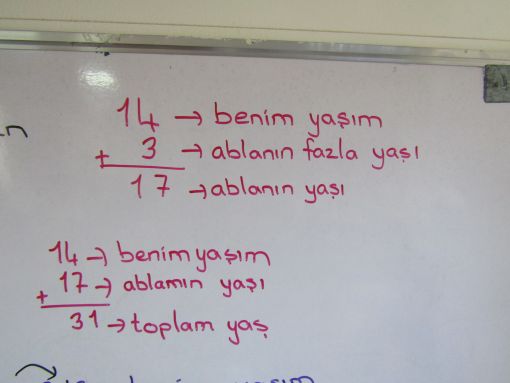 14 → benim yaşım
+ 3 → ablanın fazla yaşı
17 → ablanın yaşı
14 → benim yaşım
+ 17 → ablamın yaşı
31 → toplam yaş